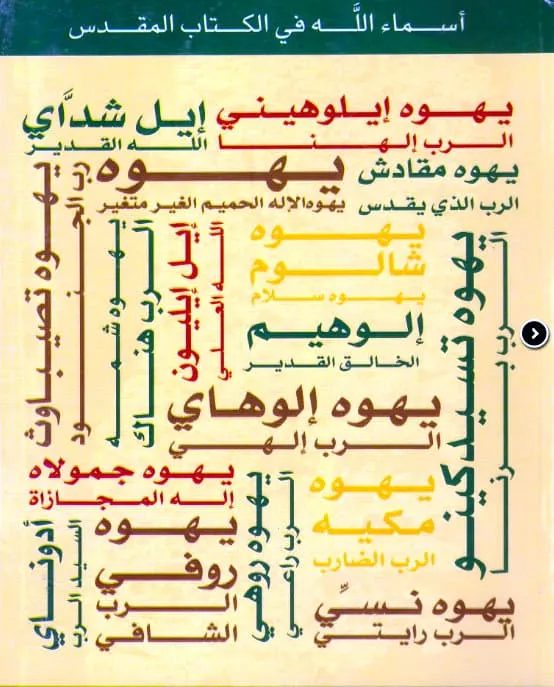 أسماء اللَّه في الكتاب المقدس
يهوه إيلوهيني
الرب إلهنا
إيل شدَّاي
اللـه القدير
يهوه مقادش
الرب الذي يقدس
يهوه
يهوه الإله الحميم الغير متغير
يهوه تصيباوث
رب الجنود
يهوه شمه
الرب هناك
إيل إيليون
اللـه العلي
يهوه
شالوم
يهوه سلام
يهوه تسيدكينو
الرب برنا
إلوهيم
الخالق القدير
يهوه إلوهاي
الرب إلهي
يهوه جمولاه
إله المجازاة
يهوه
مكيه
الرب الضارب
يهوه روهي
الرب راعيي
يهوه
روفي
الرب
الشافي
أدوناي
السيد الرب
يهوه نسيِّ
الرب رايتي